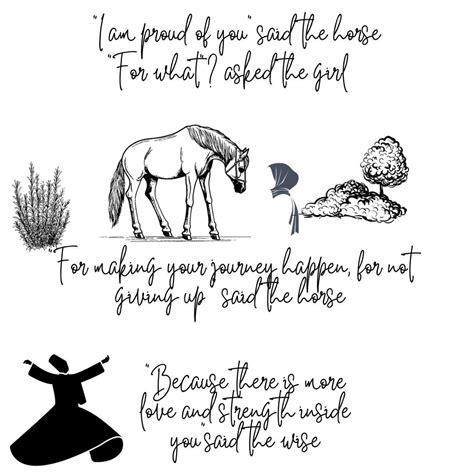 "I am proud of you" said the horse
"For what"? asked the girl
"For making your journey happen, for not
giving up" said the horse
"Because there is more
love and strength inside
you" said the wise